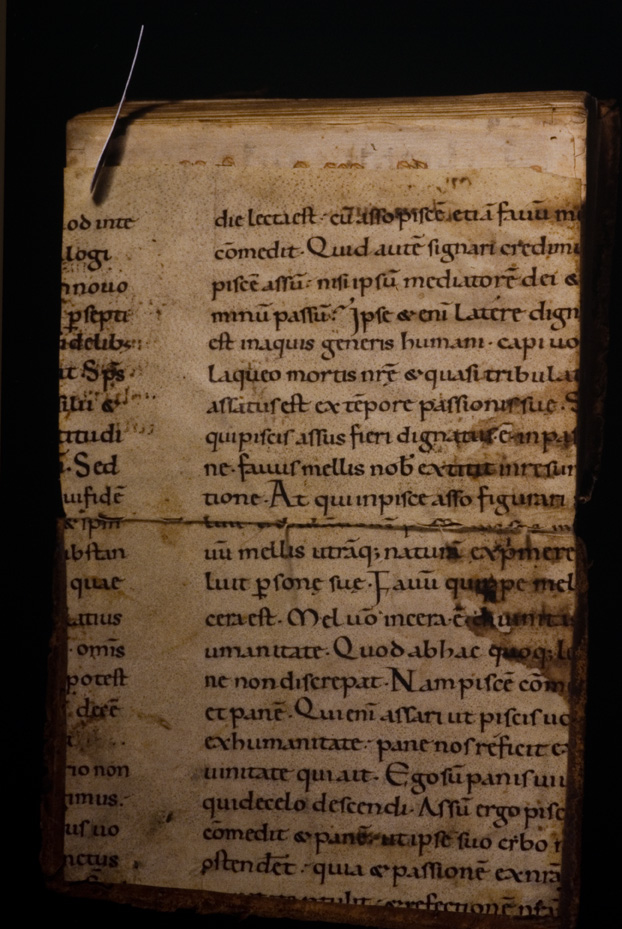 od inte
logi
nouo
ꝑsepti
idelibꝫ
it Sp̄s
&
titudi
. Sed
uifidē
& ip̄m
ubstan
quae
latius
. omīs
potest
. dc̄ēē
io non
imus.
us uo
nctus
die lecta est. cū asso pisce etiā fauū
cōmedit. Quid autē signari credim
piscē assū: nisi ipsū mediatorē dei &
minū passū? Ipse & enī Latere dign
est inaquis generis humani. capi uo
Laqueo mortis nr̄ę & quasi tribulat
assatus est ex tēpore passionis suę.
qui piscis assus fieri dignatus ē in
ne. fauus mellis nob̄ extitit in resur
tione. At qui inpisce asso figurari
uū mellis utrāqꝫ naturā exp̄mere
luit ꝑsonę suę. Fauū quippe mel
cera est. Mel uō incera. ē
umanitate. Quod ab hac quoqꝫ
ne non discrepat. Nam piscē cōm
et panē. Qui enī assari ut piscis
ex humanitate. pane nos reficit
uinitate qui ait. Ego sū panis ui
qui de celo descendi. Assū ergo pisc
cōmedit & panē. ut ipse suo
ostendēt. quia & passionē ex
& refectionē